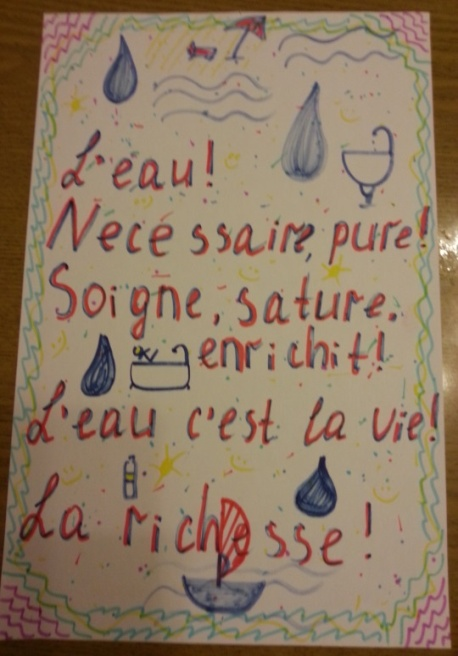 L'eau!
Necéssaire, pure!
Soigne, sature.
enrichit!
L'eau c'est la vie!
La richesse!